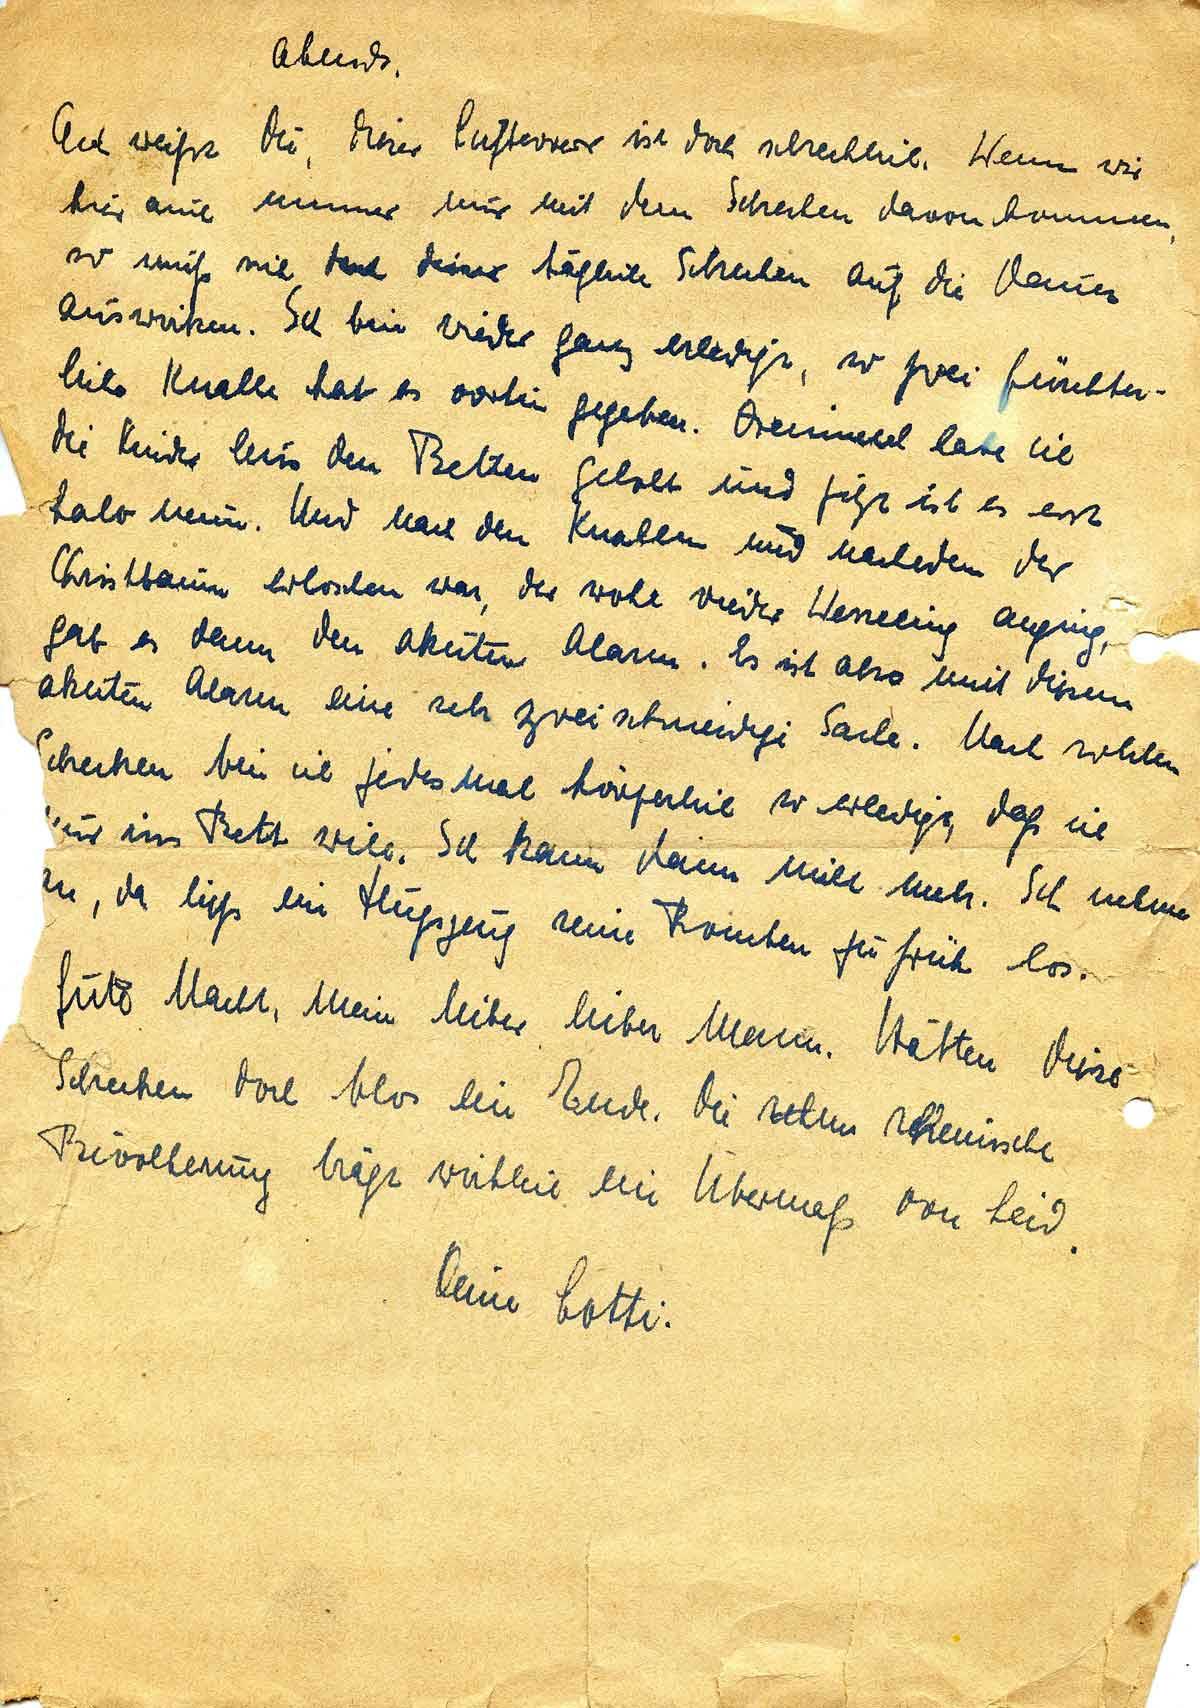 Abends.
Ach weißt Du, dieser Luftterror ist doch schrecklich. Wenn wir
hier auch immer nur mit dem Schrecken davon kommen,
so muß sich dieser tägliche Schrecken auf die Dauer
auswirken. Ich bin wieder ganz erledigt, so zwei fürchter-
liche Knalle hat es vorhin gegeben. Dreimal habe ich
die Kinder aus den Betten geholt und jetzt ist es erst
halb neun. Und nach den Knallen und nachdem der
Christbaum erloschen war, der wohl wieder Wesseling anging,
gab es dann den akuten Alarm. Es ist also mit diesem
akuten Alarm eine sehr zweischneidige Sache. Nach solchen
Schrecken bin ich jedesmal körperlich so erledigt, daß ich
nur ins Bett will. Ich kann dann nicht mehr. Ich nehme
an, da ließ ein Flugzeug seine Bomben zu früh los.
Gute Nacht, mein lieber lieber Mann. Hätten diese
Schrecken doch blos ein Ende. Die rheinische
Bevölkerung trägt wirklich ein Übermaß von Leid.
Deine Lotti.